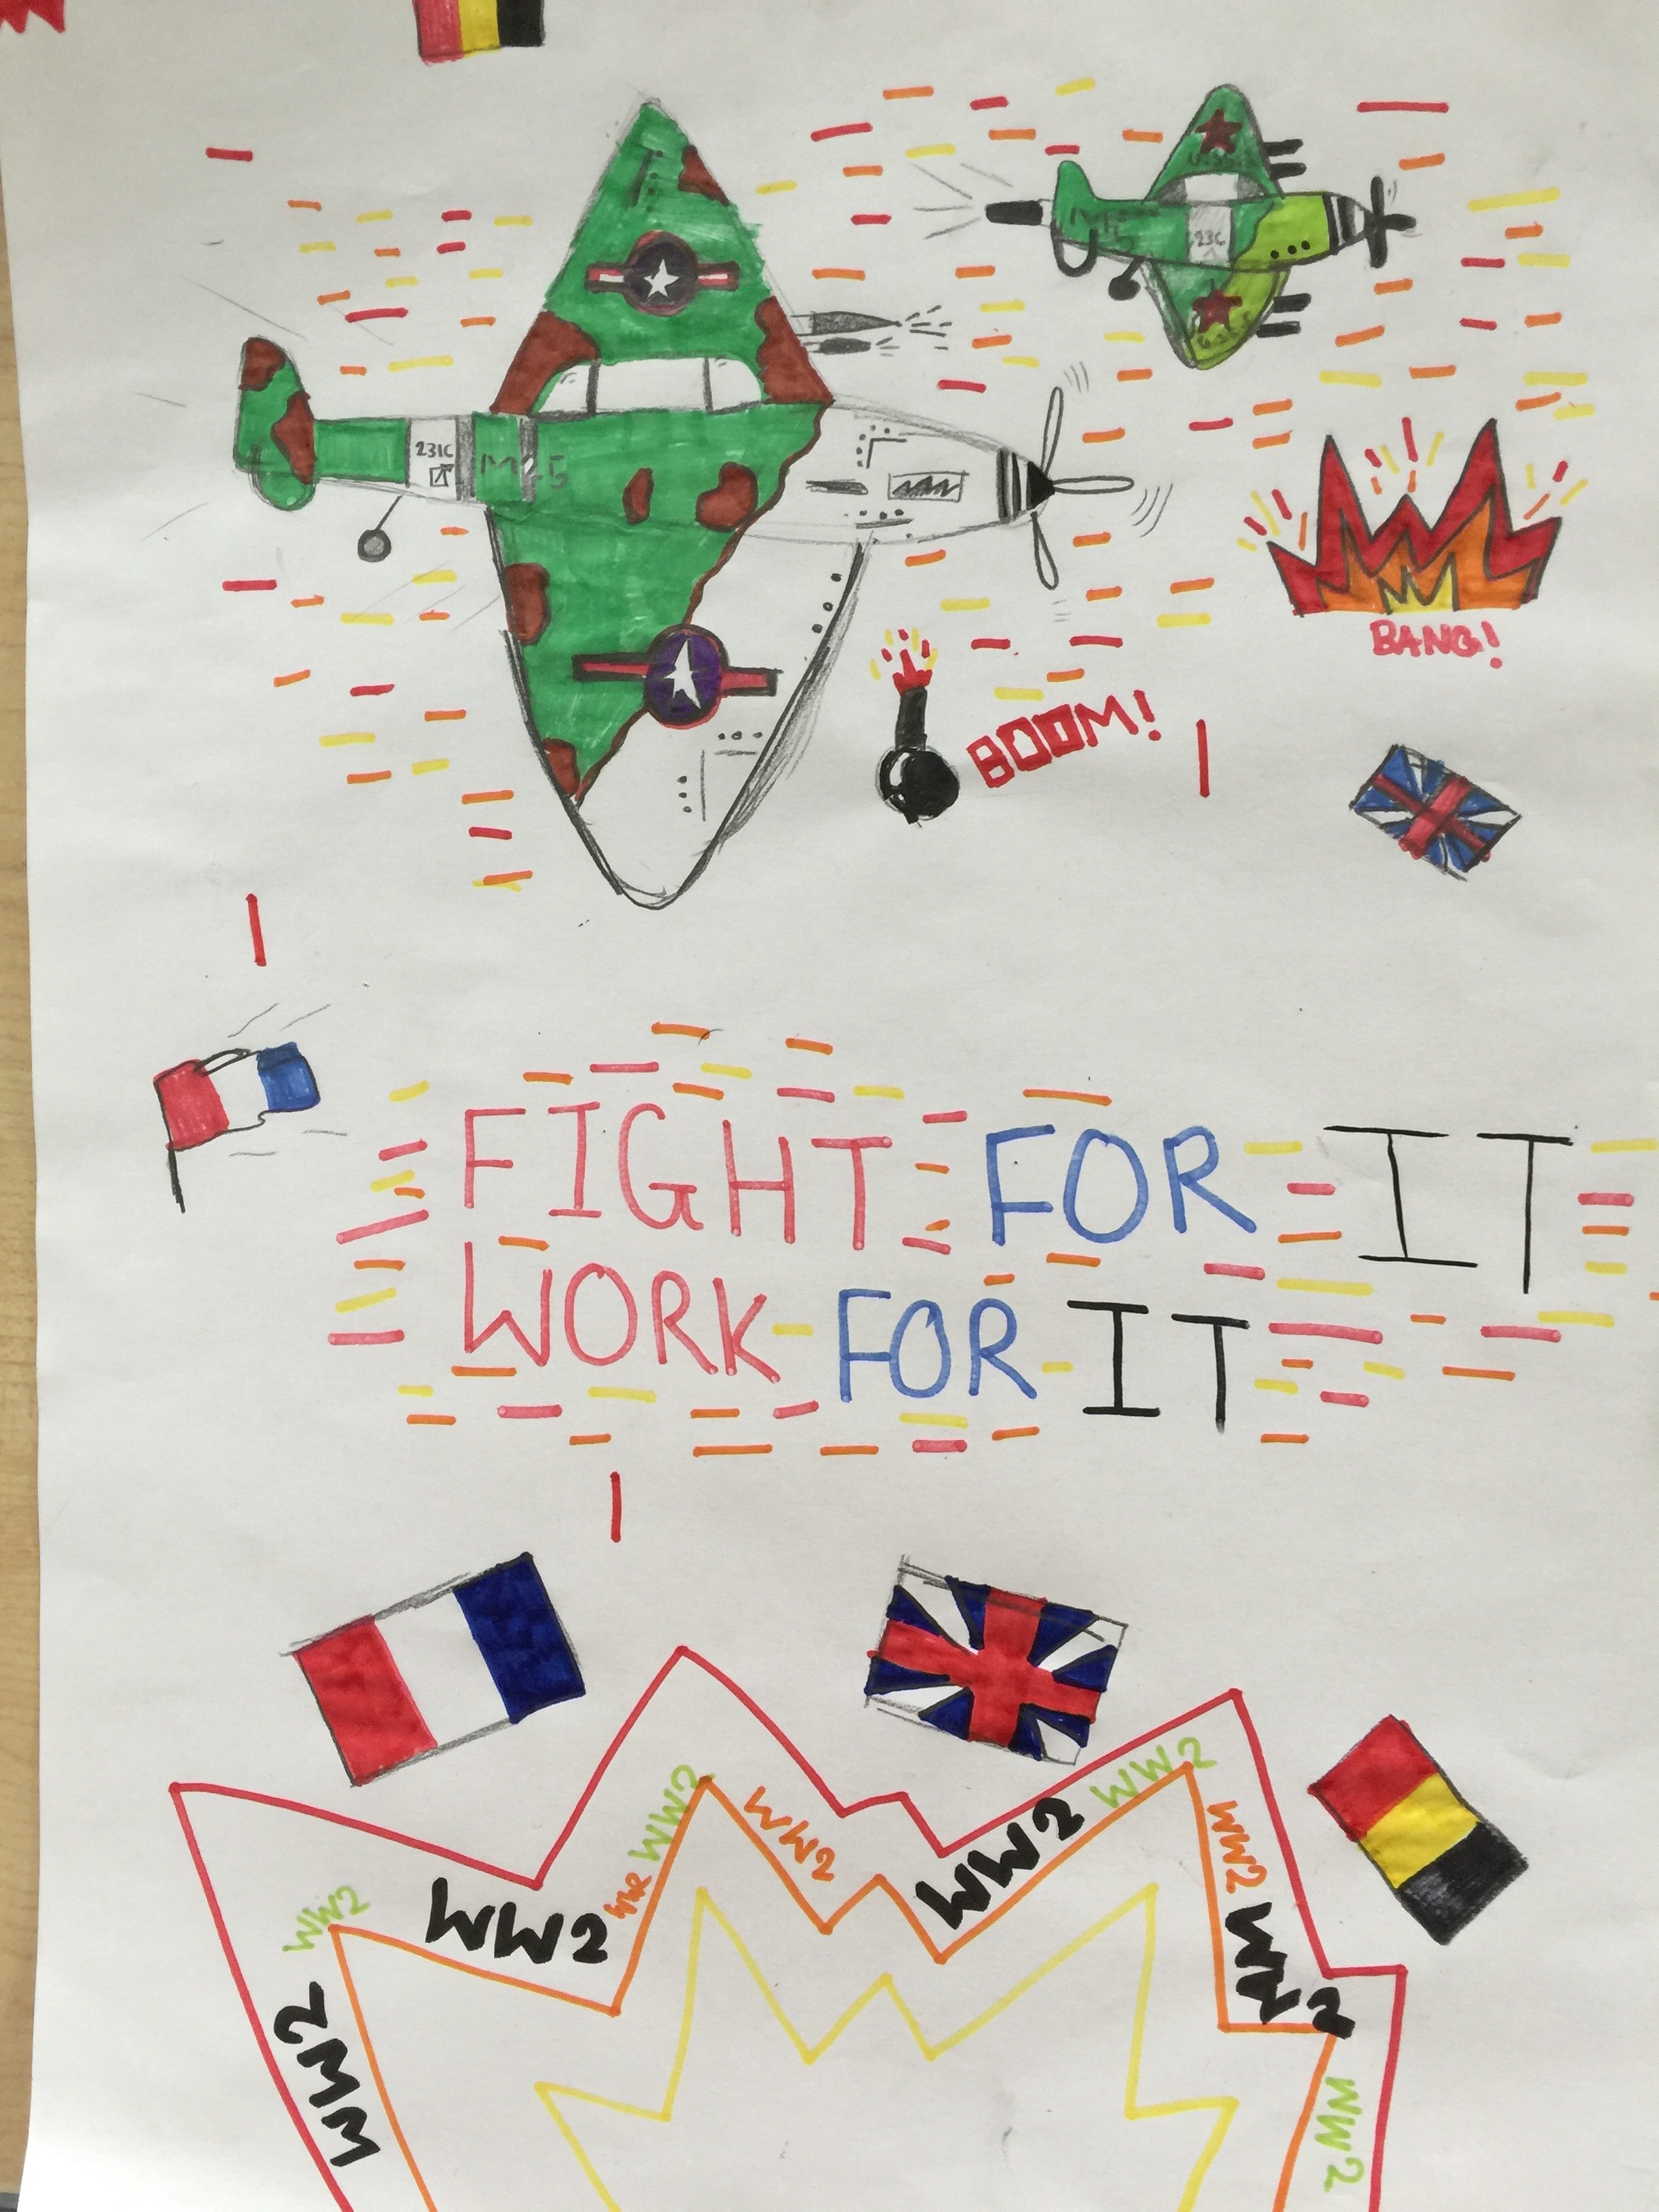 23IC
M25
23C
BANG!
BOOM!
FIGHT FOR IT
WORK FOR IT
WW2
WW2
WW2
WW2
WW2
WW2
WW2
WW2
WW2
WW2
WW2